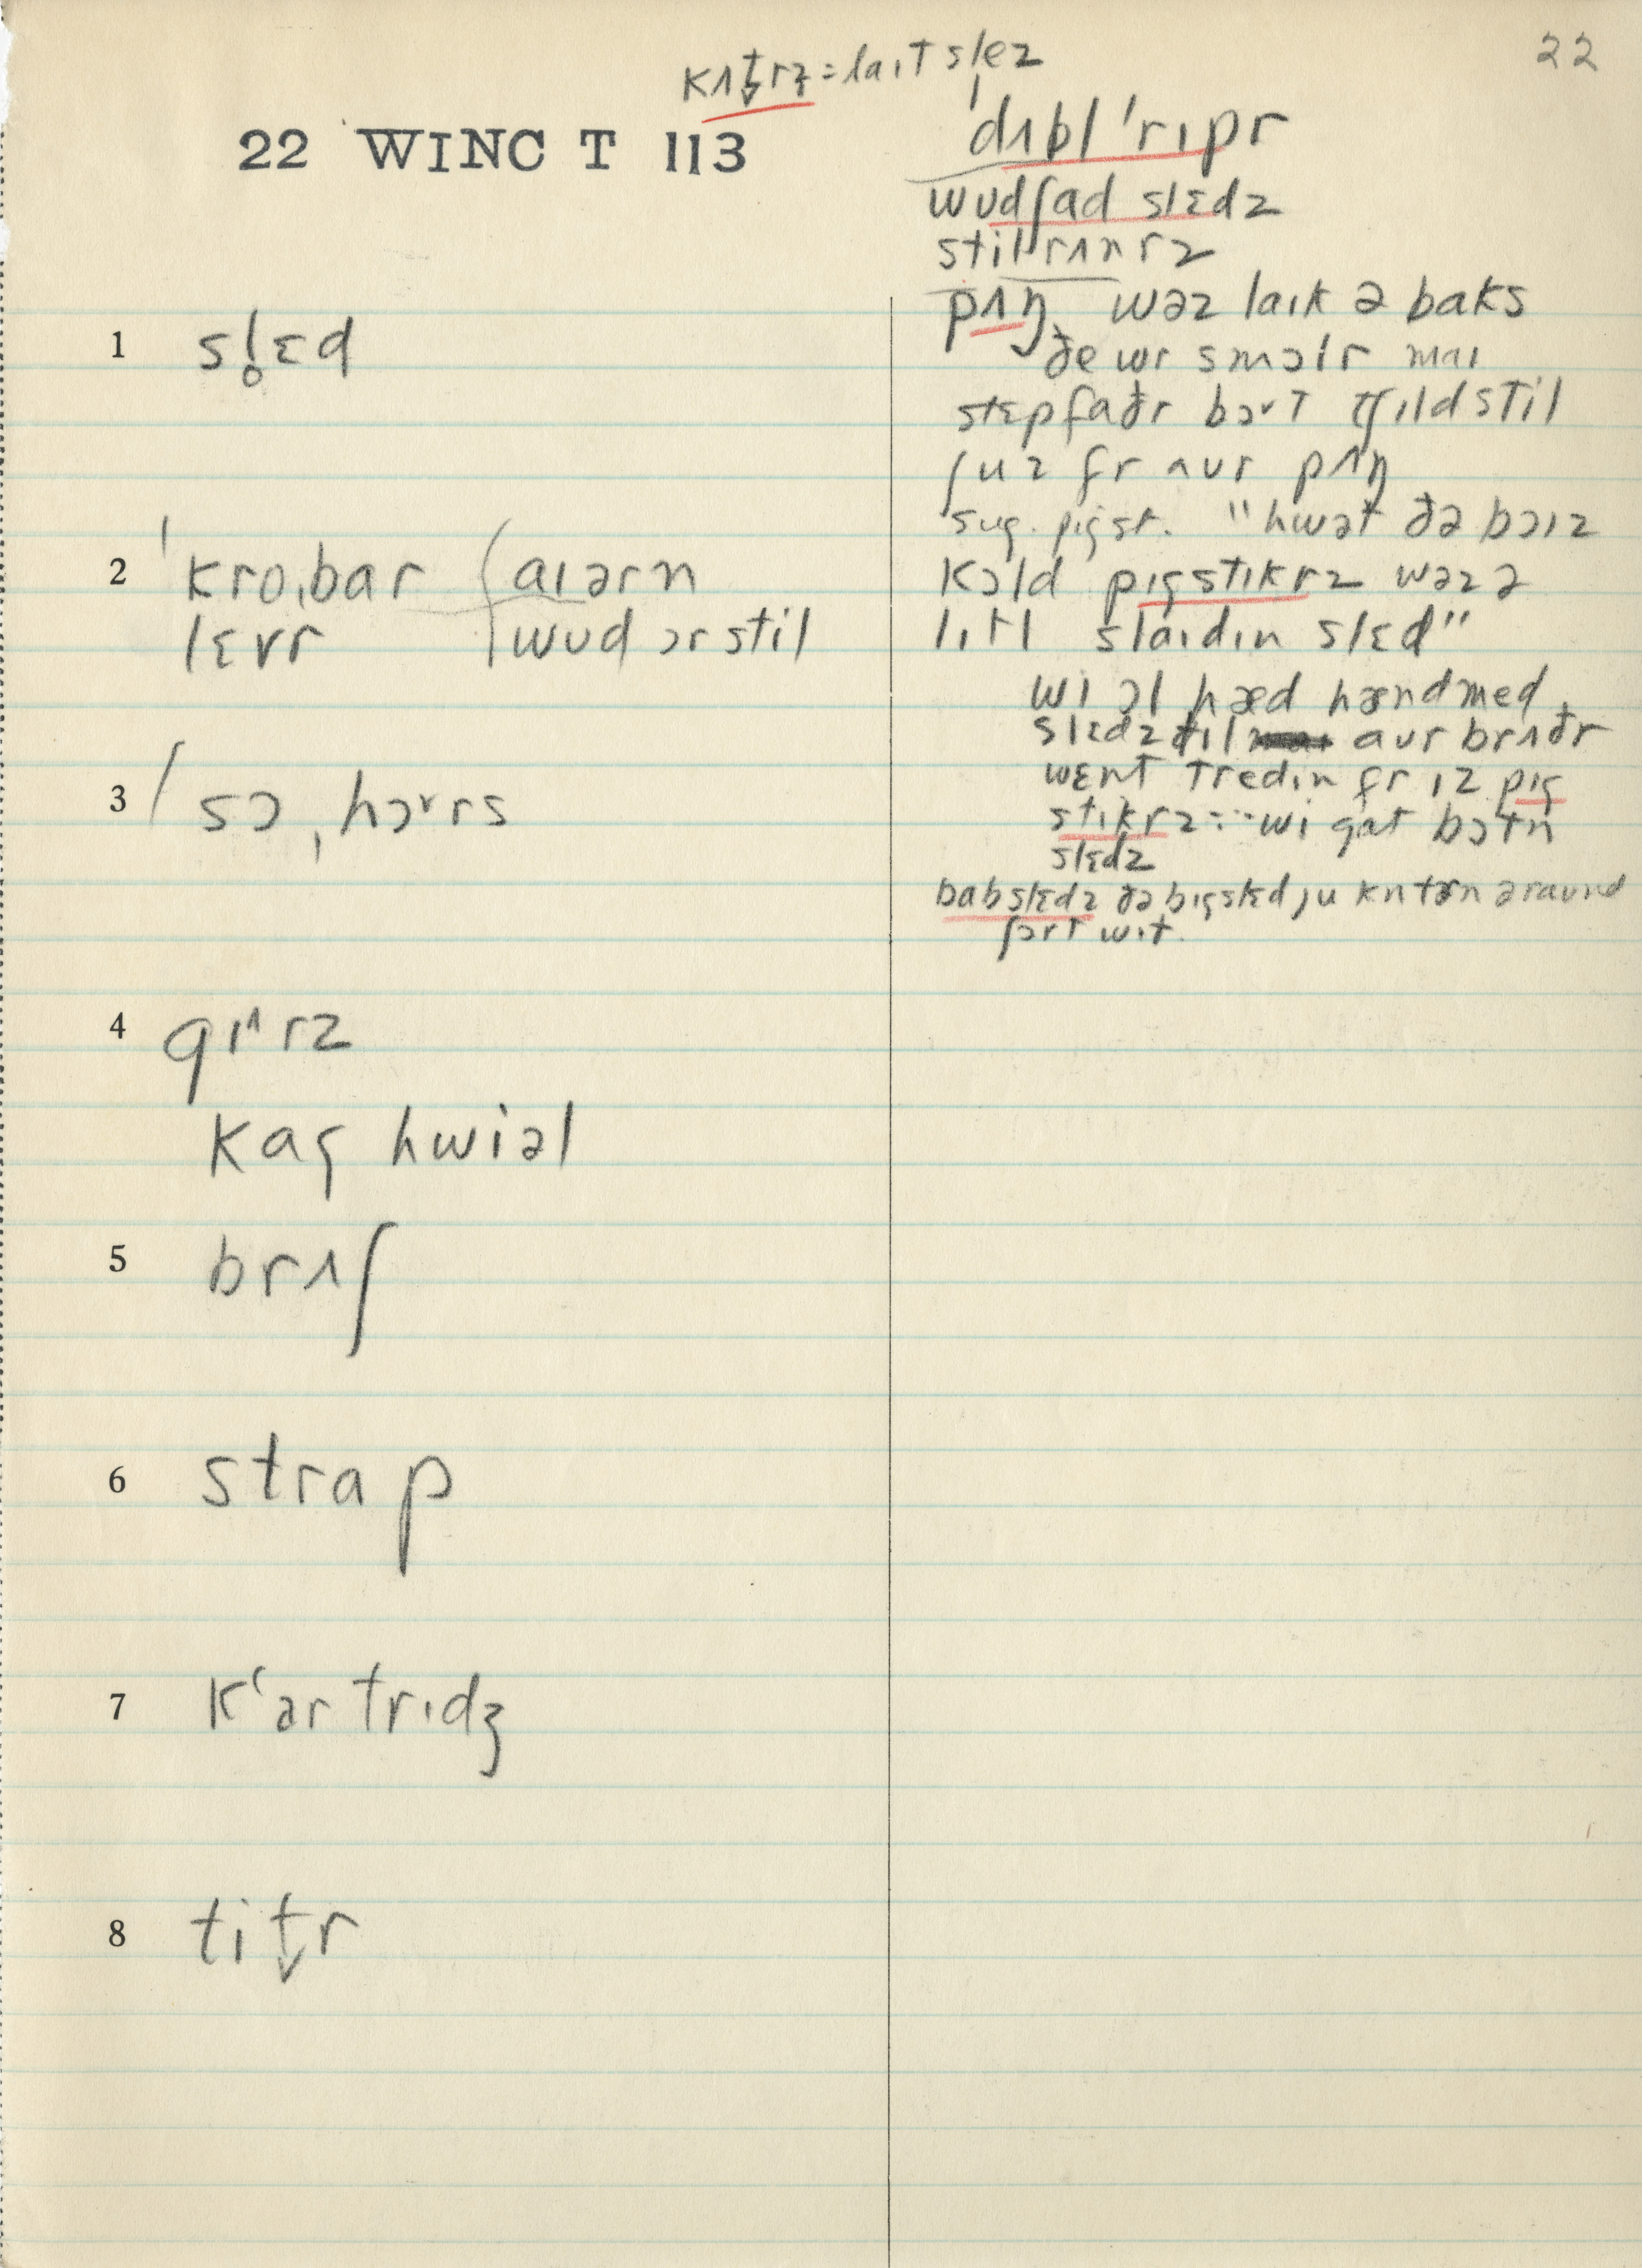 22
kʌt̬rz = laɪt slez
22 WINC T 113
ˈdʌblˈrɪpr
wʊdʃad slɛdz
stilrʌnrz
pʌŋ wəz laɪk ə baks
ðe wr smɔlr maɪ
stɛpfaðr bɔˇt tʃɪldstil
ʃuz fr aʊr pʌŋ
sug. pigst. "hwət ðə bɔɪz
kɔld pɪgstɪkrz wəz ə
lɪtl slaɪdɪn slɛd"
wi ɔl hæd hændmed
slɛdz tɪl aʊr brʌðr
wɛnt tredɪn fr ɪz pɪg
stɪkrz:-- wi gat bɔtn
slɛdz
babslɛdz ðə bɪg slɛd ju kn tɜrn əraʊnd
ʃɔrt wɪt.
1 sl̥ɛd
2 ˈkroˌbar (aɪərn
lɛvr wʊd ɔr stil
3 ˈsɔˌhɔˇrs
4 gɪ^rz
kag hwiəl
5 brʌʃ
6 strap
7 kʻartrɪdʒ
8 tit̬r